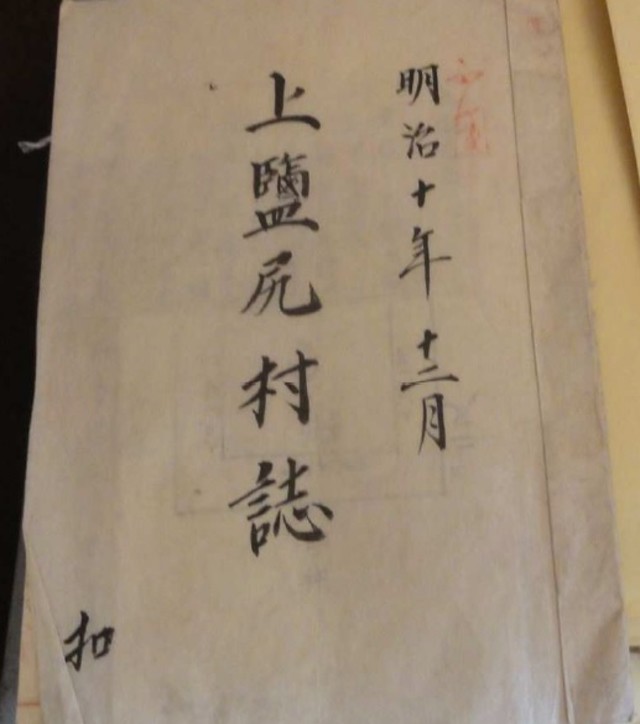 明治十年十二月
上鹽尻村誌
扣